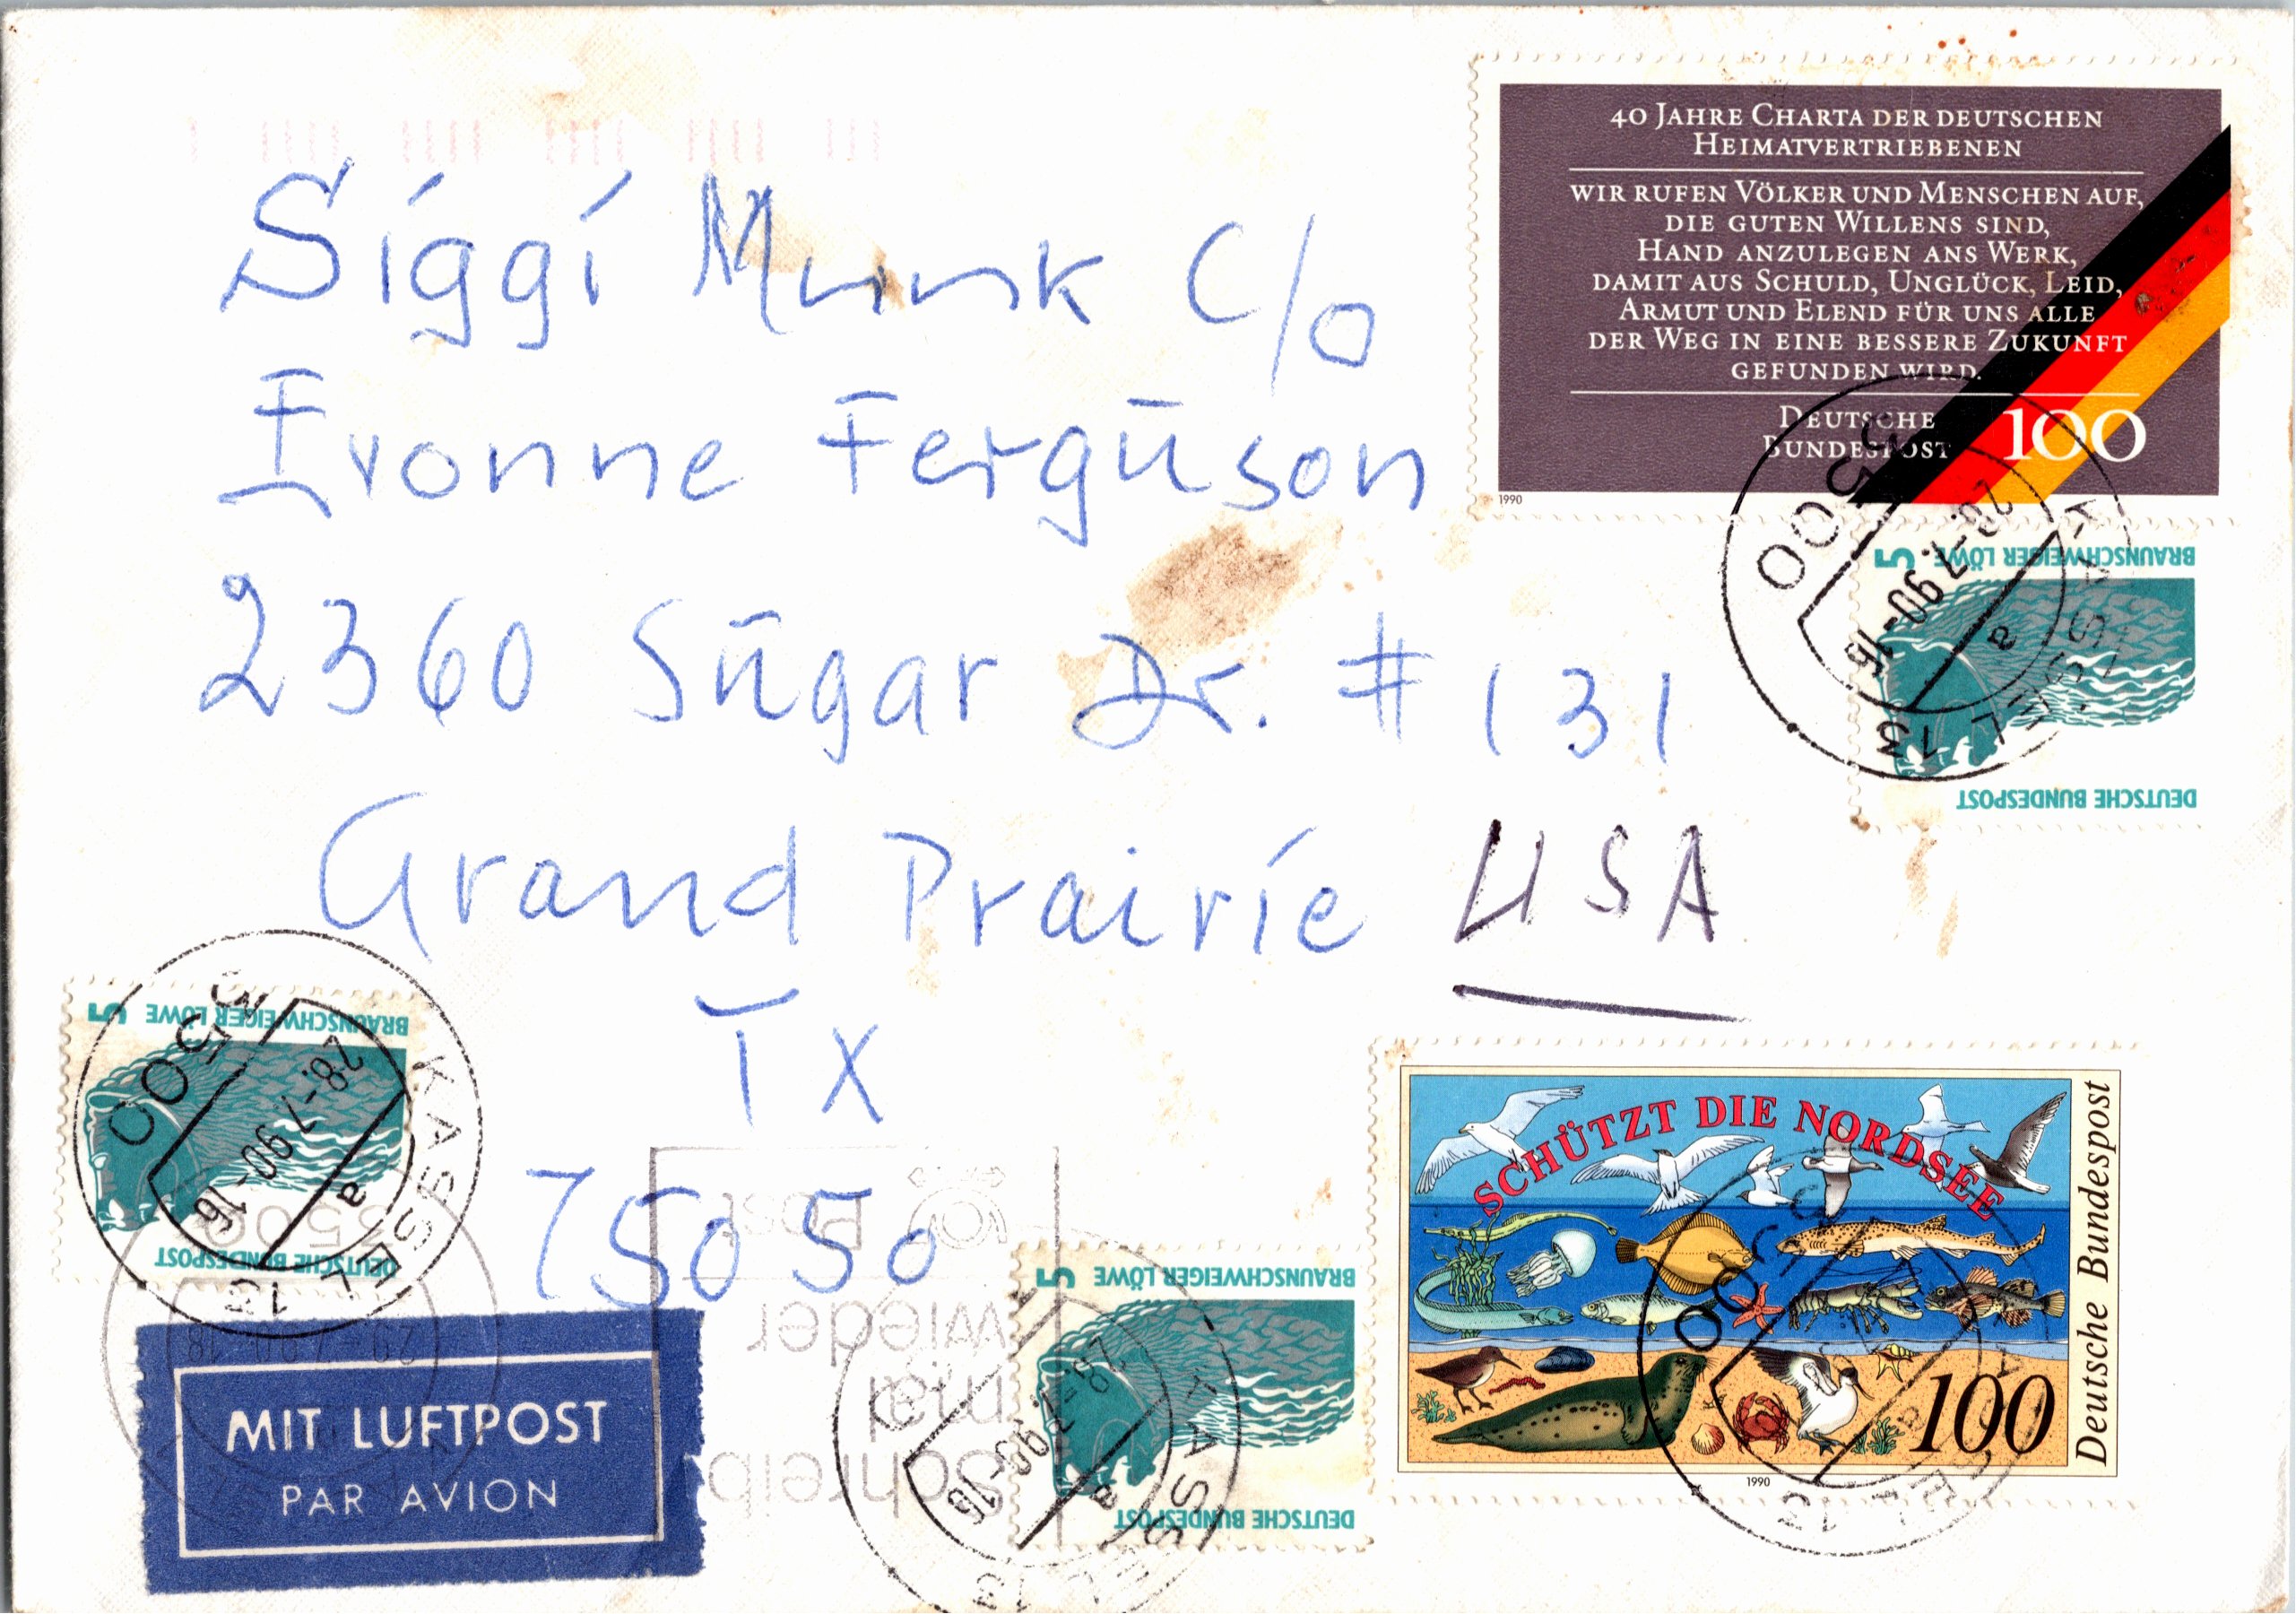 40 JAHRE CHARTA DER DEUTSCHEN
HEIMATVERTRIEBENEN
WIR RUFEN VÖLKER UND MENSCHEN AUF,
DIE GUTEN WILLENS SIND,
HAND ANZULEGEN ANS WERK,
DAMIT AUS SCHULD, UNGLÜCK, LEID,
ARMUT UND ELEND FÜR UNS ALLE
DER WEG IN EINE BESSERE ZUKUNFT
GEFUNDEN WIRD.
DEUTSCHE
BUNDESPOST 100
1990
Siggi Munk C/o
Evonne Fergūson
2360 Sūgar Dr. #131
Grand Prairie USA
TX
75050
BRAUNSCHWEIGER LÖWE 5
DEUTSCHE BUNDESPOST
3500 KASSEL 13
28.-7.90-16
a
BRAUNSCHWEIGER LÖWE 5
DEUTSCHE BUNDESPOST
3500 KASSEL 13
28.-7.90-16
a
MIT LUFTPOST
PAR AVION
Schreib
mal
wieder
Post
3500
29.-7.90-18
BRAUNSCHWEIGER LÖWE 5
DEUTSCHE BUNDESPOST
KASSEL 13
a
SCHÜTZT DIE NORDSEE
100
Deutsche Bundespost
1990